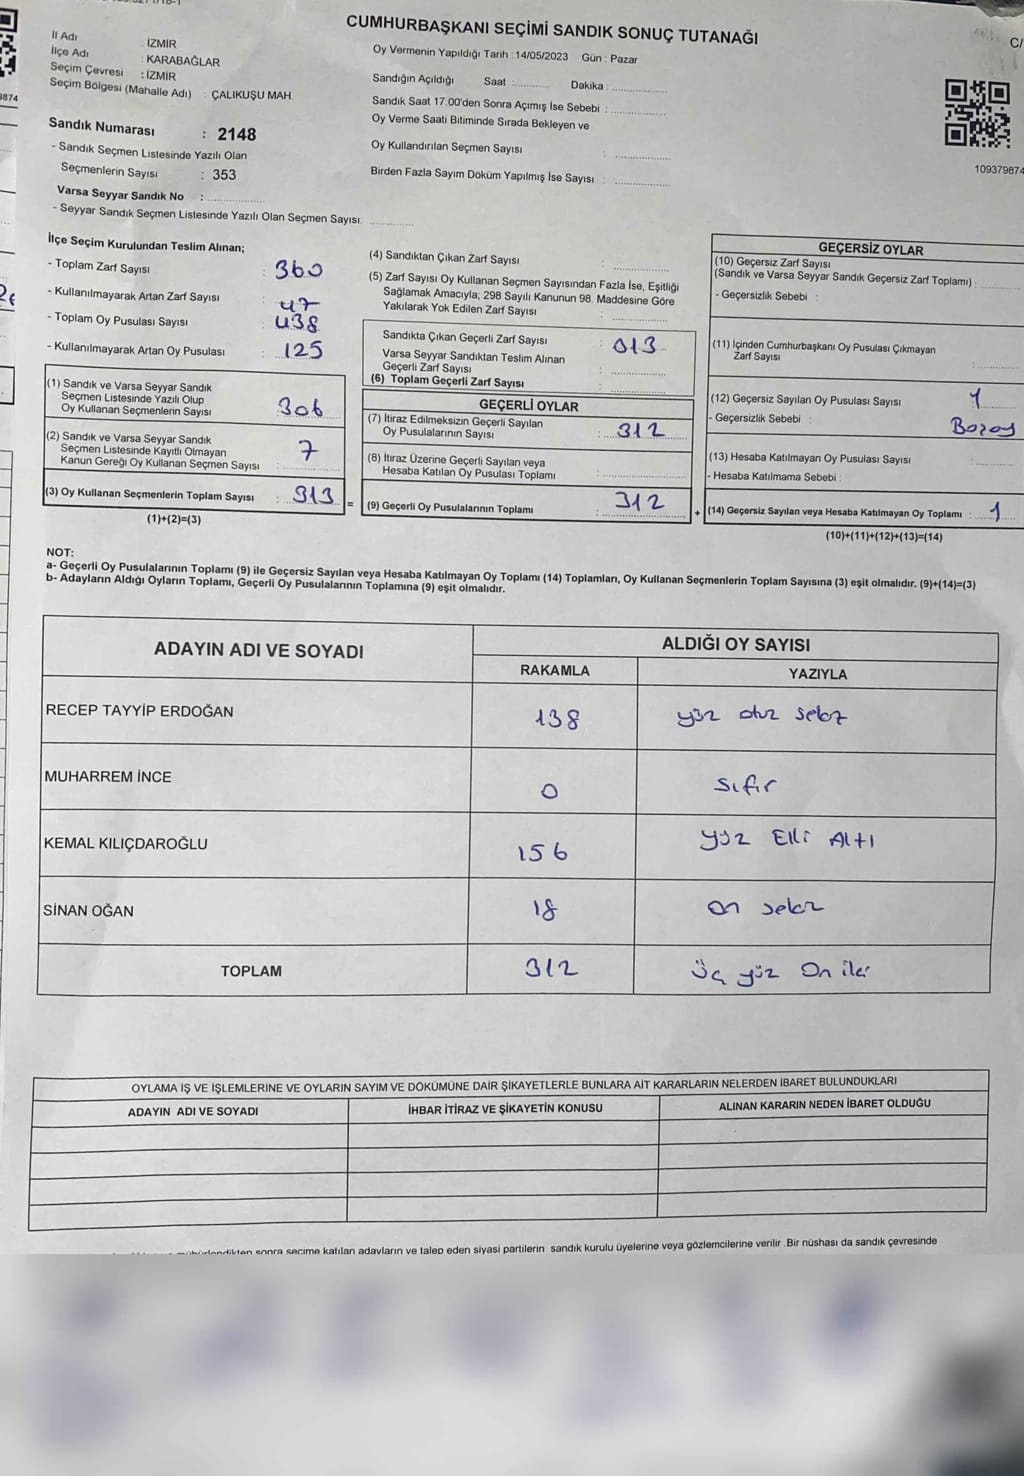 CUMHURBAŞKANI SEÇİMİ SANDIK SONUÇ TUTANAĞI
C/
İl Adı : İZMİR
İlçe Adı : KARABAĞLAR
Seçim Çevresi : İZMİR
Seçim Bölgesi (Mahalle Adı) : ÇALIKUŞU MAH.
Sandık Numarası : 2148
- Sandık Seçmen Listesinde Yazılı Olan
Seçmenlerin Sayısı : 353
Varsa Seyyar Sandık No :
- Seyyar Sandık Seçmen Listesinde Yazılı Olan Seçmen Sayısı:
Oy Vermenin Yapıldığı Tarih : 14/05/2023 Gün : Pazar
Sandığın Açıldığı Saat : Dakika :
Sandık Saat 17:00'den Sonra Açımış İse Sebebi :
Oy Verme Saati Bitiminde Sırada Bekleyen ve
Oy Kullandırılan Seçmen Sayısı :
Birden Fazla Sayım Döküm Yapılmış İse Sayısı :
109379874
9874
İlçe Seçim Kurulundan Teslim Alınan;
- Toplam Zarf Sayısı : 360
- Kullanılmayarak Artan Zarf Sayısı : 47
- Toplam Oy Pusulası Sayısı : 438
- Kullanılmayarak Artan Oy Pusulası : 125
(1) Sandık ve Varsa Seyyar Sandık
Seçmen Listesinde Yazılı Olup
Oy Kullanan Seçmenlerin Sayısı : 306
(2) Sandık ve Varsa Seyyar Sandık
Seçmen Listesinde Kayıtlı Olmayan
Kanun Gereği Oy Kullanan Seçmen Sayısı : 7
(3) Oy Kullanan Seçmenlerin Toplam Sayısı : 313
(1)+(2)=(3)
(4) Sandıktan Çıkan Zarf Sayısı :
(5) Zarf Sayısı Oy Kullanan Seçmen Sayısından Fazla İse, Eşitliği
Sağlamak Amacıyla; 298 Sayılı Kanunun 98. Maddesine Göre
Yakılarak Yok Edilen Zarf Sayısı :
Sandıkta Çıkan Geçerli Zarf Sayısı : 013
Varsa Seyyar Sandıktan Teslim Alınan
Geçerli Zarf Sayısı :
(6) Toplam Geçerli Zarf Sayısı :
GEÇERLİ OYLAR
(7) İtiraz Edilmeksizin Geçerli Sayılan
Oy Pusulalarının Sayısı : 312
(8) İtiraz Üzerine Geçerli Sayılan veya
Hesaba Katılan Oy Pusulası Toplamı :
= (9) Geçerli Oy Pusulalarının Toplamı : 312
GEÇERSİZ OYLAR
(10) Geçersiz Zarf Sayısı
(Sandık ve Varsa Seyyar Sandık Geçersiz Zarf Toplamı) :
- Geçersizlik Sebebi :
(11) İçinden Cumhurbaşkanı Oy Pusulası Çıkmayan
Zarf Sayısı :
(12) Geçersiz Sayılan Oy Pusulası Sayısı : 1
- Geçersizlik Sebebi :
(13) Hesaba Katılmayan Oy Pusulası Sayısı :
- Hesaba Katılmama Sebebi :
+ (14) Geçersiz Sayılan veya Hesaba Katılmayan Oy Toplamı : 1
(10)+(11)+(12)+(13)=(14)
NOT:
a- Geçerli Oy Pusulalarının Toplamı (9) ile Geçersiz Sayılan veya Hesaba Katılmayan Oy Toplamı (14) Toplamları, Oy Kullanan Seçmenlerin Toplam Sayısına (3) eşit olmalıdır. (9)+(14)=(3)
b- Adayların Aldığı Oyların Toplamı, Geçerli Oy Pusulalarının Toplamına (9) eşit olmalıdır.
ADAYIN ADI VE SOYADI ALDIĞI OY SAYISI
RAKAMLA YAZIYLA
RECEP TAYYİP ERDOĞAN 138 yüz otuz sekiz
MUHARREM İNCE 0 Sıfır
KEMAL KILIÇDAROĞLU 156 Yüz Elli Altı
SİNAN OĞAN 18 on sekiz
TOPLAM 312 Üç yüz On iki
OYLAMA İŞ VE İŞLEMLERİNE VE OYLARIN SAYIM VE DÖKÜMÜNE DAİR ŞİKAYETLERLE BUNLARA AİT KARARLARIN NELERDEN İBARET BULUNDUKLARI
ADAYIN ADI VE SOYADI İHBAR İTİRAZ VE ŞİKAYETİN KONUSU ALINAN KARARIN NEDEN İBARET OLDUĞU
sonra seçime katılan adayların ve talep eden siyasi partilerin sandık kurulu üyelerine veya gözlemcilerine verilir. Bir nüshası da sandık çevresinde